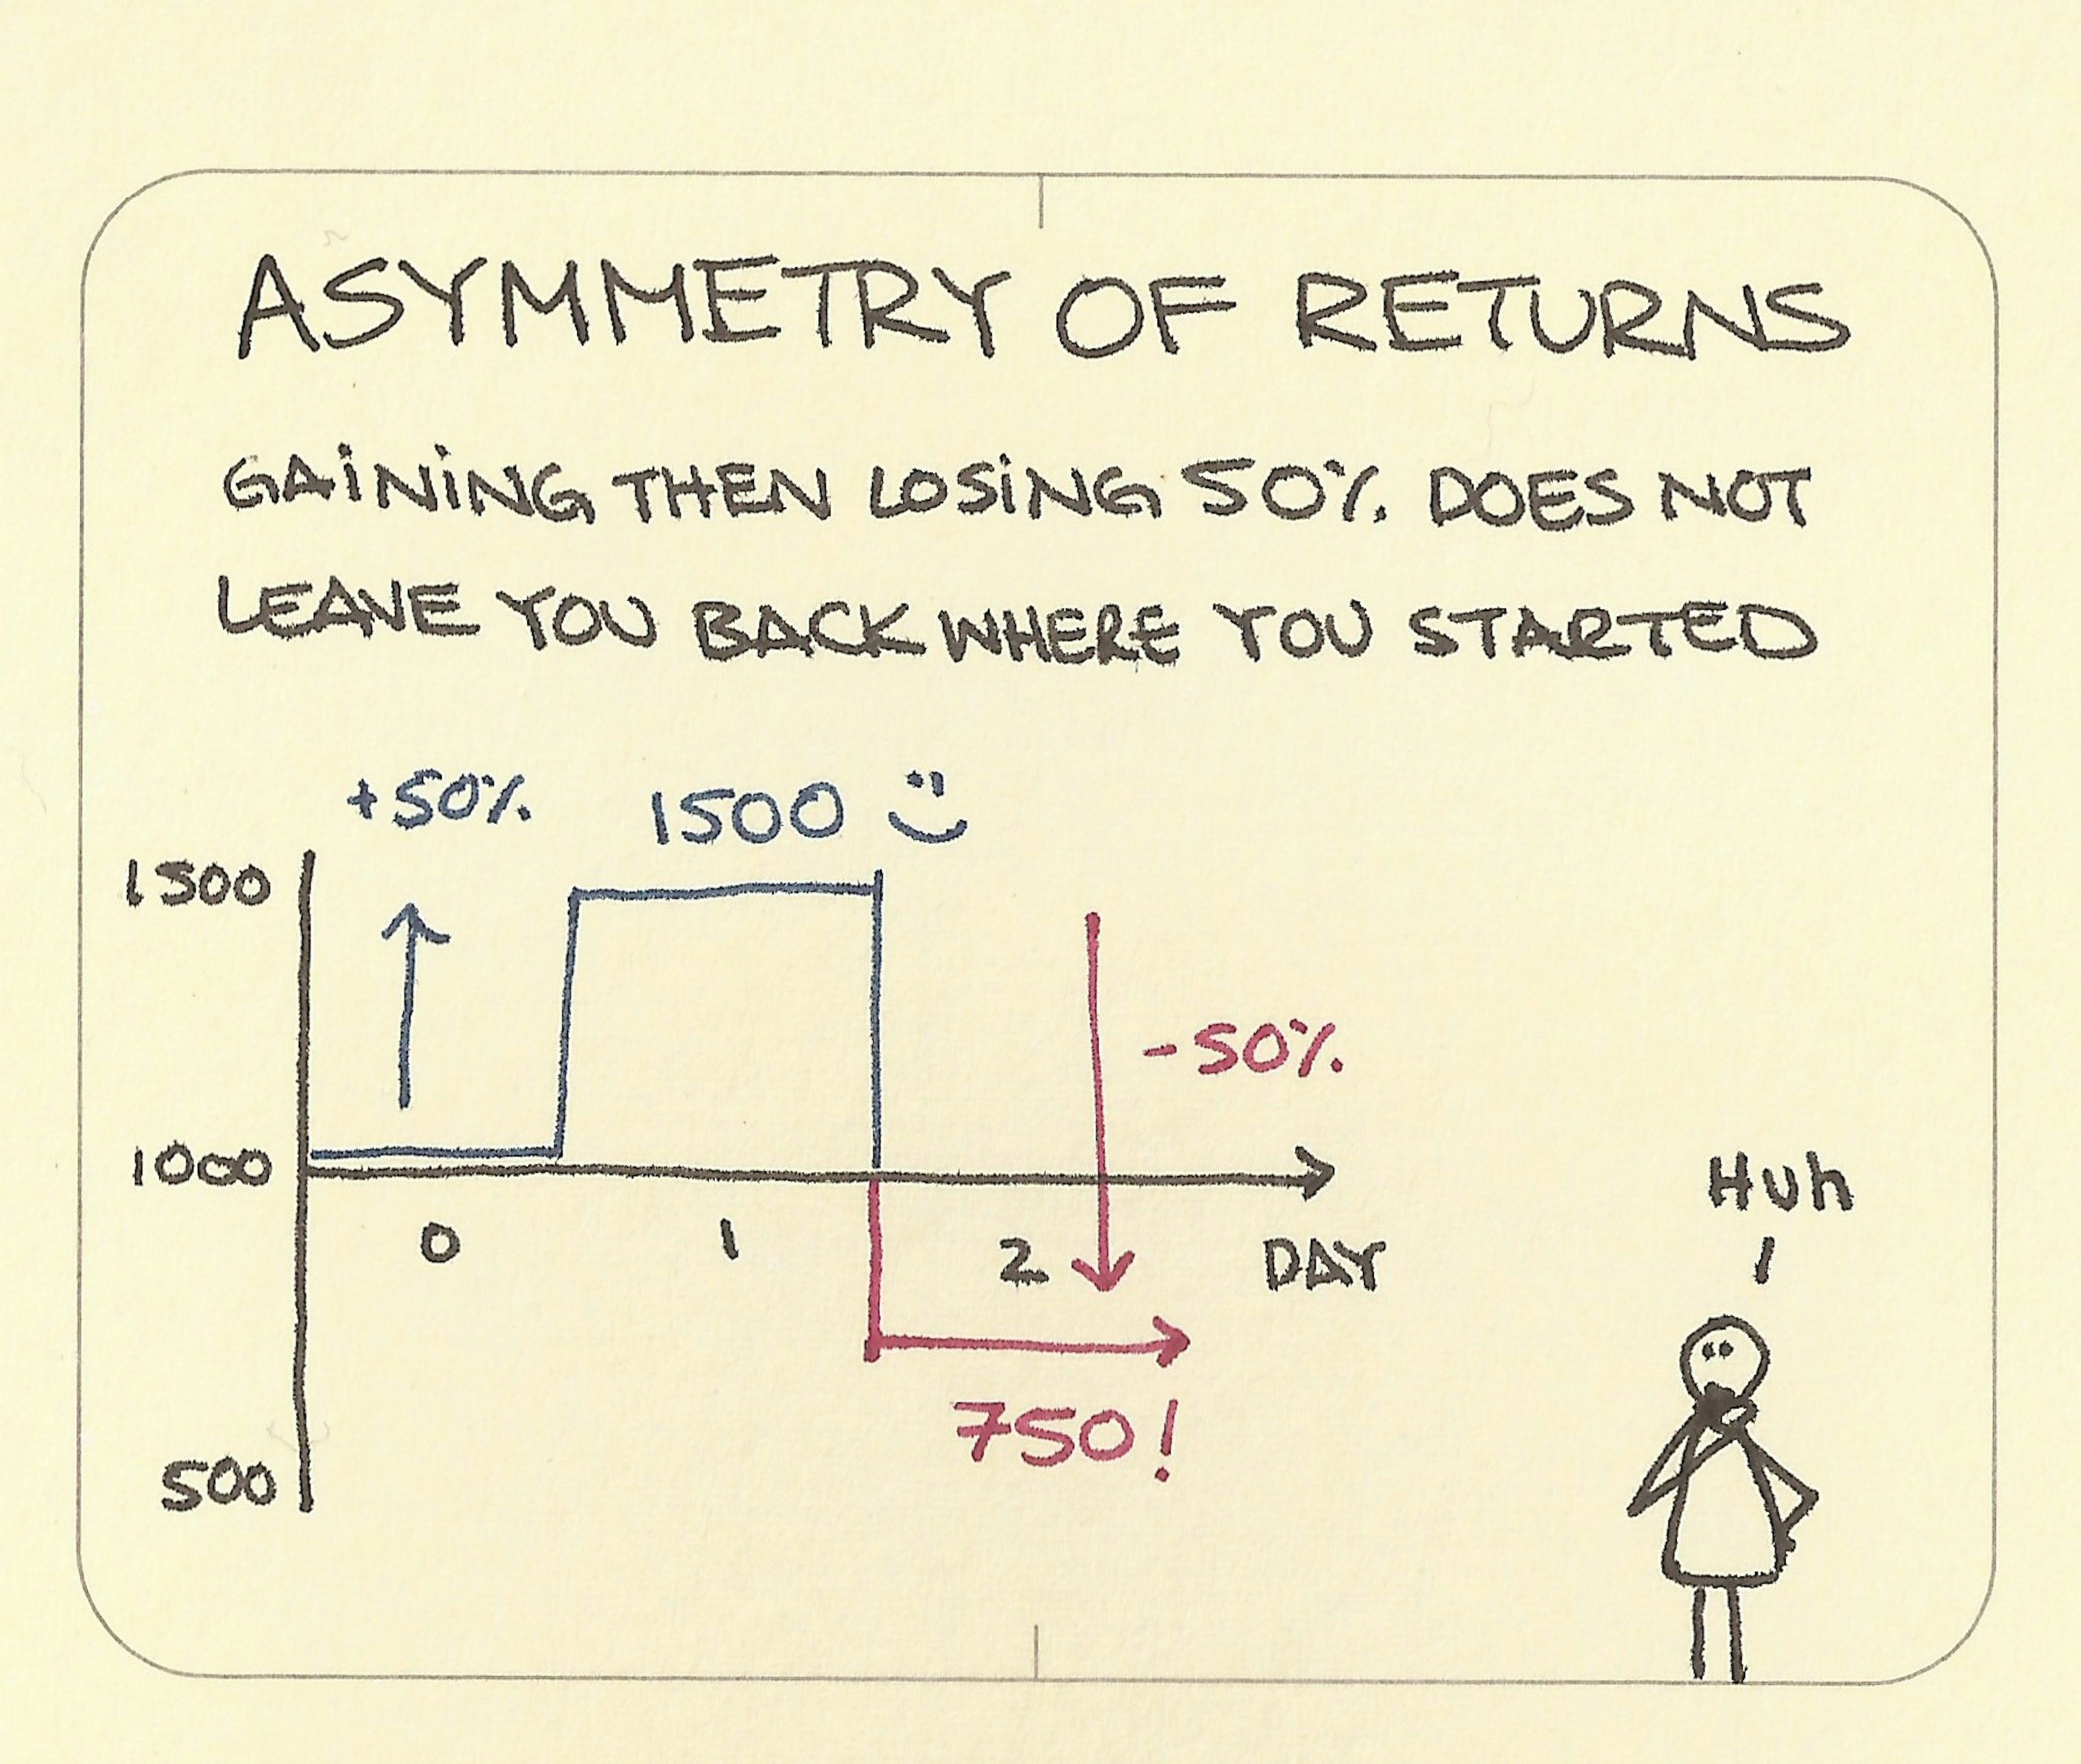 ASYMMETRY OF RETURNS
GAINING THEN LOSING 50% DOES NOT
LEAVE YOU BACK WHERE YOU STARTED
+50% 1500 :)
1500
-50%
1000
0 1 2 DAY
Huh
750!
500